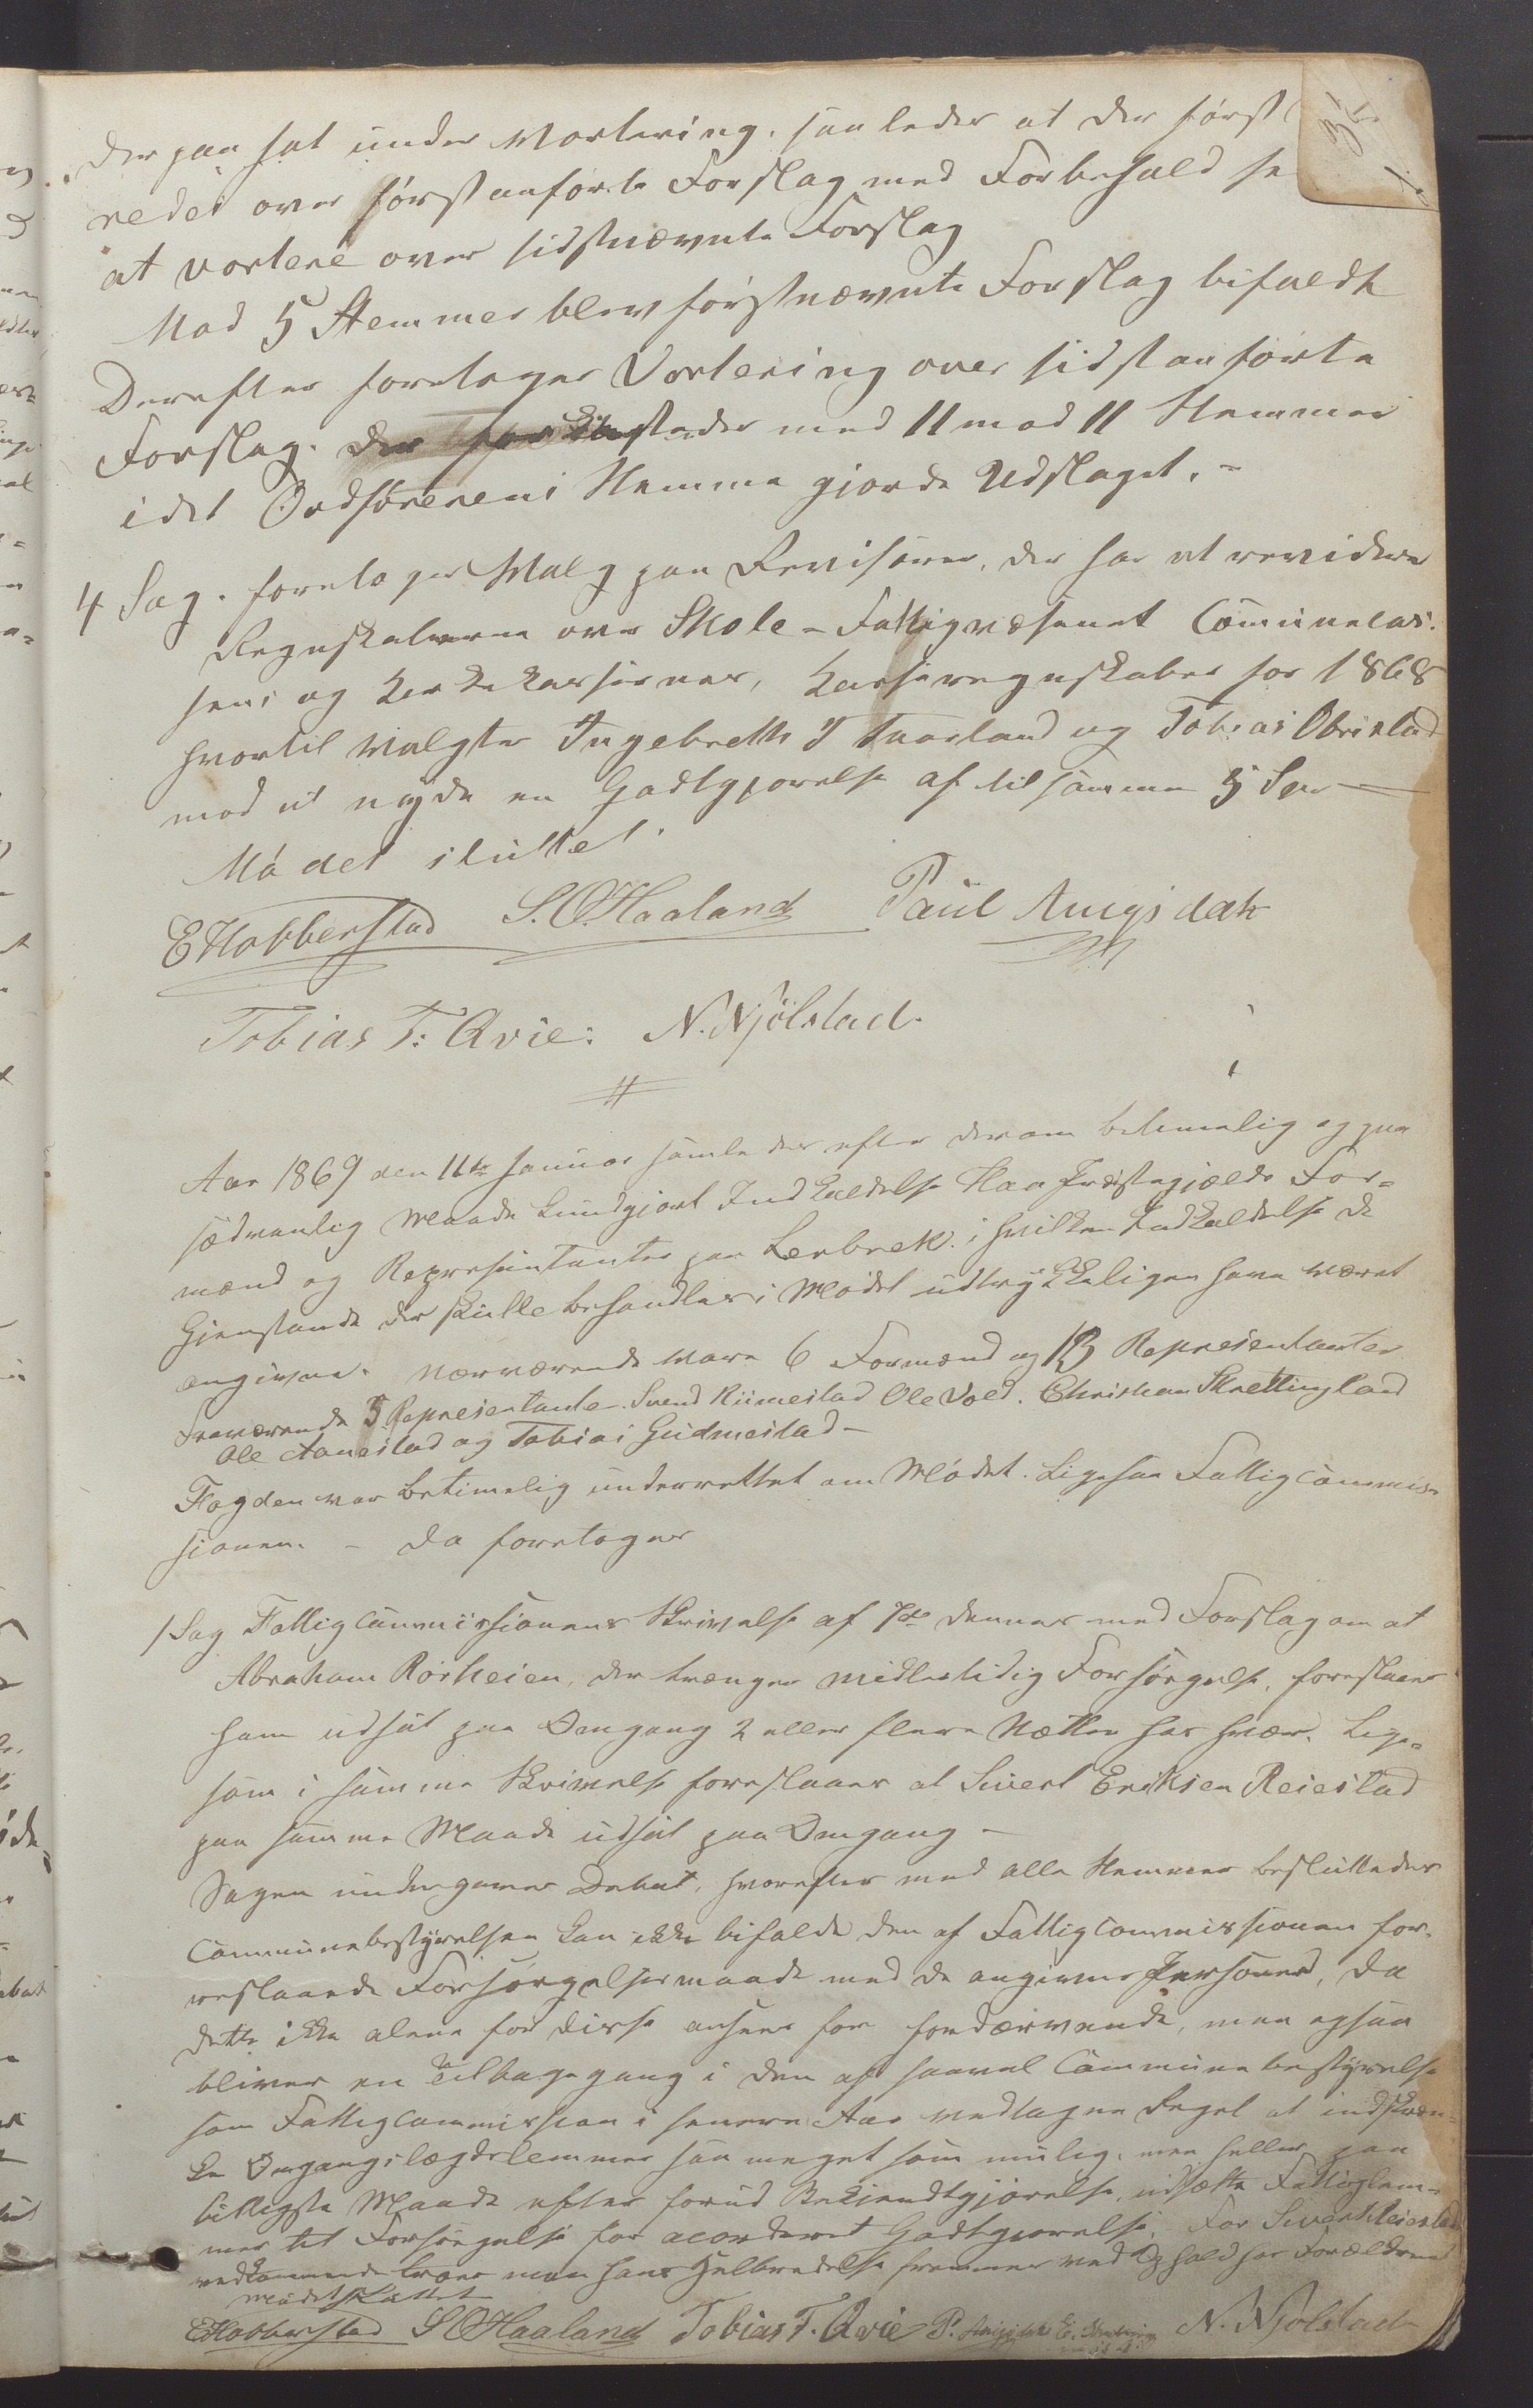 der paa sat under Vortering, saaledes at der først
redes over førstanførte Forslag med Forbehold se
at vortere over sidstnævnte Forslag
Mod 5 Stemmer blev førstnævnte Forslag bifaldt
Derefter foretoges Vortering over sidstanførte
Forslag. der stades med 11 mod 11 Stemmer
idet Ordførerens Stemme gjorde Udslaget. -
4 Sag. foretoges Valg paa Revisorer, der har at revidere
Regnskaberne over Skole- Fattigvæsenet Comunecas-
sens og Kirkekassernes, Kasseregnskaber for 1868
hvortil valgtes Ingebreth T Tuarland og Tobias Obrestad
mod at nyde en Godtgjørelse af tilsammen 5 Spd
Mødet sluttet.
E Hobberstad S. O Haaland Paul Aurgsdah
Tobias T: Qvie: N. Njölstad.
Aar 1869 den 11te Januar samledes efter derom betimelig og paa
sædvanlig Maade kundgjort Indkaldelse Haa Præstegjælds For-
mænd og Representanter paa Lerbrek. i hvilken Indkaldelse de
Gjenstande der skulle behandles i Mødet udtrykkeligen have været
angivne. Nærværende vare 6 Formænd og 13 Representanter
Fraværende 5 Representanter. Svend Riimestad Ole Vold. Christian Skrettingland
Ole Aanestad og Tobias Gudmestad -
Fogden var betimelig underrettet om Mødet. Ligesaa Fattigcommis-
sionen. - Da foretoges
1 Sag Fattigcommissionens Skrivelse af 7de dennes med Forslag om at
Abraham Rörheien, der trænger midlertidig Forsørgelse, foreslaaes
ham udsat paa Omgang 2 eller flere Nætter hos hver. Lige-
som i samme Skrivelse foreslaaes at Sivert Eriksen Reiestad
paa samme Maade udsat paa Omgang -
Sagen undergaves Debat, hvorefter med alle Stemmer besluttedes
Communebestyrelsen kan ikke bifalde den af Fattigcommissionen for-
reslaaede Forsørgelsesmaade med de angivne Personer, da
dette ikke alene for disse ansees for fordærvende, men ogsaa
bliver en Tilbagegang i den af saavel Communebestyrelse
som Fattigcommission i senere Aar vedtagne Regel at indskræn-
ke Omgangslægdslemmer saa meget som mulig. men heller paa
billigste Maade efter forud Bekjendtgjørelse, udsætte Fattiglem-
mer til Forsørgelse for acorderet Godtgjørelse. For Sivert Reiestad
vedkommende troer man hans Helbredelse fremmes ved Ophold hos Forældrene
Mødet sluttet
E Hobberstad S O Haaland Tobias T. Qvie P. Aurgsdah E. N. Njolstad